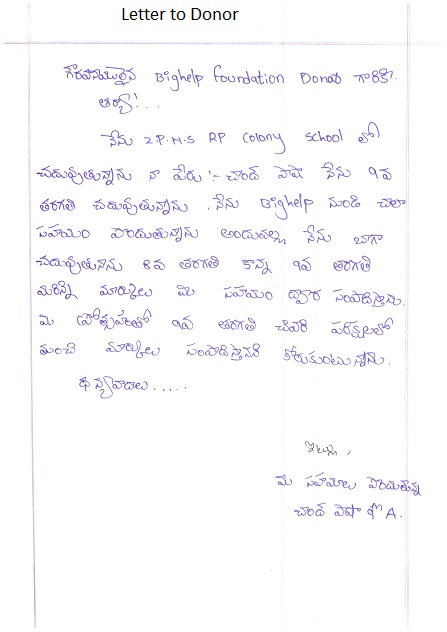 Letter to Donor
గౌరవనీయులైన Bighelp Foundation Donar గారికి.
ఆర్యా!...
నేను Z.P.H.S RP Colony school లో
చదువుతున్నాను నా పేరు :- చాంద్ పాషా నేను 9వ
తరగతి చదువుతున్నాను. నేను Bighelp నుండి చాలా
సహయం పొందుతున్నాను అందువల్ల నేను బాగా
చదువుతునాను 8వ తరగతి కాన్న 9వ తరగతి
మరిన్ని మార్కులు మి సహయం ద్వార సంపాదిస్తాను.
మి ప్రోత్సహంతో 9వ తరగతి చివరి పరిక్షలలో
మంచి మార్కులు సంపాదిస్తానని కోరుకుంటున్నాను.
ధన్యవాదాలు.....
ఇట్లు,
మి సహయాలు పొందుతున్న
చాంద్ పాషా 9th A.